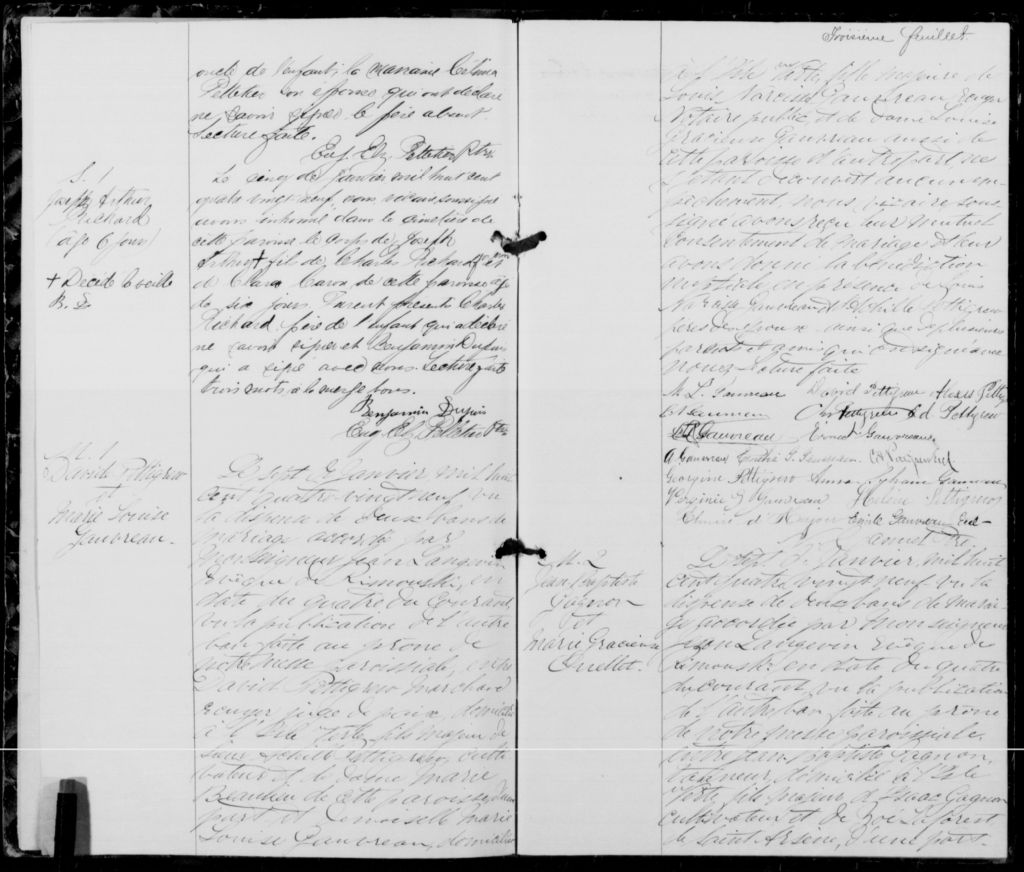 oncle de l'enfant, la marraine
Pelletier son épouse qui ont déclaré
ne savoir signer le père absent
Lecture faite.
Eug. Elz. Pelletier Ptre
S. 1
Joseph Arthur
Richard
(âgé 6 jours)
+ Décédé la veille
B. D
Le cinq de Janvier mil huit cent
quatre vingt neuf, nous vicaire soussigné
avons inhumé dans le cimetière de
cette paroisse le corps de Joseph
Arthur + fils de Charles Richard et
de Clara Caron de cette paroisse âgé
de six jours. Parent présent Charles
Richard père de l'enfant qui a déclaré
ne savoir signer et Benjamin Dupuis
qui a signé avec nous. Lecture faite
trois mots à la marge bons.
Benjamin Dupuis
Eug. Elz. Pelletier Ptre
M. 1
David Pettigrew
et
Marie Louise
Gauvreau.
Le sept de Janvier mil huit
cent quatre vingt neuf vu
la dispense de deux bans de
mariage accordée par
Monseigneur Jean Langevin
Evêque de Rimouski, en
date du quatre du courant,
vu la publication de l'autre
ban faite au prône de
notre messe paroissiale, entre
David Pettigrew marchand
écuyer juge de paix, domicilié
à l'Isle Verte, fils majeur de
cultivateur
et de Dame Marie
Beaulieu de cette paroisse d'une
part, et Demoiselle Marie
Louise Gauvreau, domiciliée
Troisième feuillet.
à l'Isle Verte, fille majeure de
Louis Narcisse Gauvreau Ecuyer
Notaire public et de Dame Louise
Gracieuse Gauvreau aussi de
cette paroisse d'autre part ne
s'étant découvert aucun em-
pêchement, nous, vicaire sous-
signé avons reçu leur mutuel
consentement de mariage et leur
avons donné la bénédiction
nuptiale en présence de Louis
Narcisse Gauvreau et de Pettigrew
pères des époux ainsi que de plusieurs
parents et amis qui ont signé avec
nous. Lecture faite
M. L. Gauvreau David Pettigrew Alexis Pettigrew
Gauvreau Chs Pettigrew Ed. Pettigrew
Gauvreau Ernest Gauvreau
A Gauvreau
Georgine Pettigrew Anna Gauvreau
Virginie Gauvreau Hélène Pettigrew
Elmire Emile Gauvreau
Ptre
M. 2
Jean Baptiste
Gagnon
et
Marie Gracieuse
Ouellet.
Le sept de Janvier mil huit
cent quatre vingt neuf vu la
dispense de deux bans de maria-
ge accordée par Monseigneur
Jean Langevin Evêque de
Rimouski en date du quatre
du courant vu la publication
de l'autre ban faite au prône
de notre messe paroissiale,
entre Jean Baptiste Gagnon,
domicilié à l'Isle
Verte, fils majeur d'Isaac Gagnon
cultivateur et de Zoé Laforest
de Saint Arsène, d'une part.